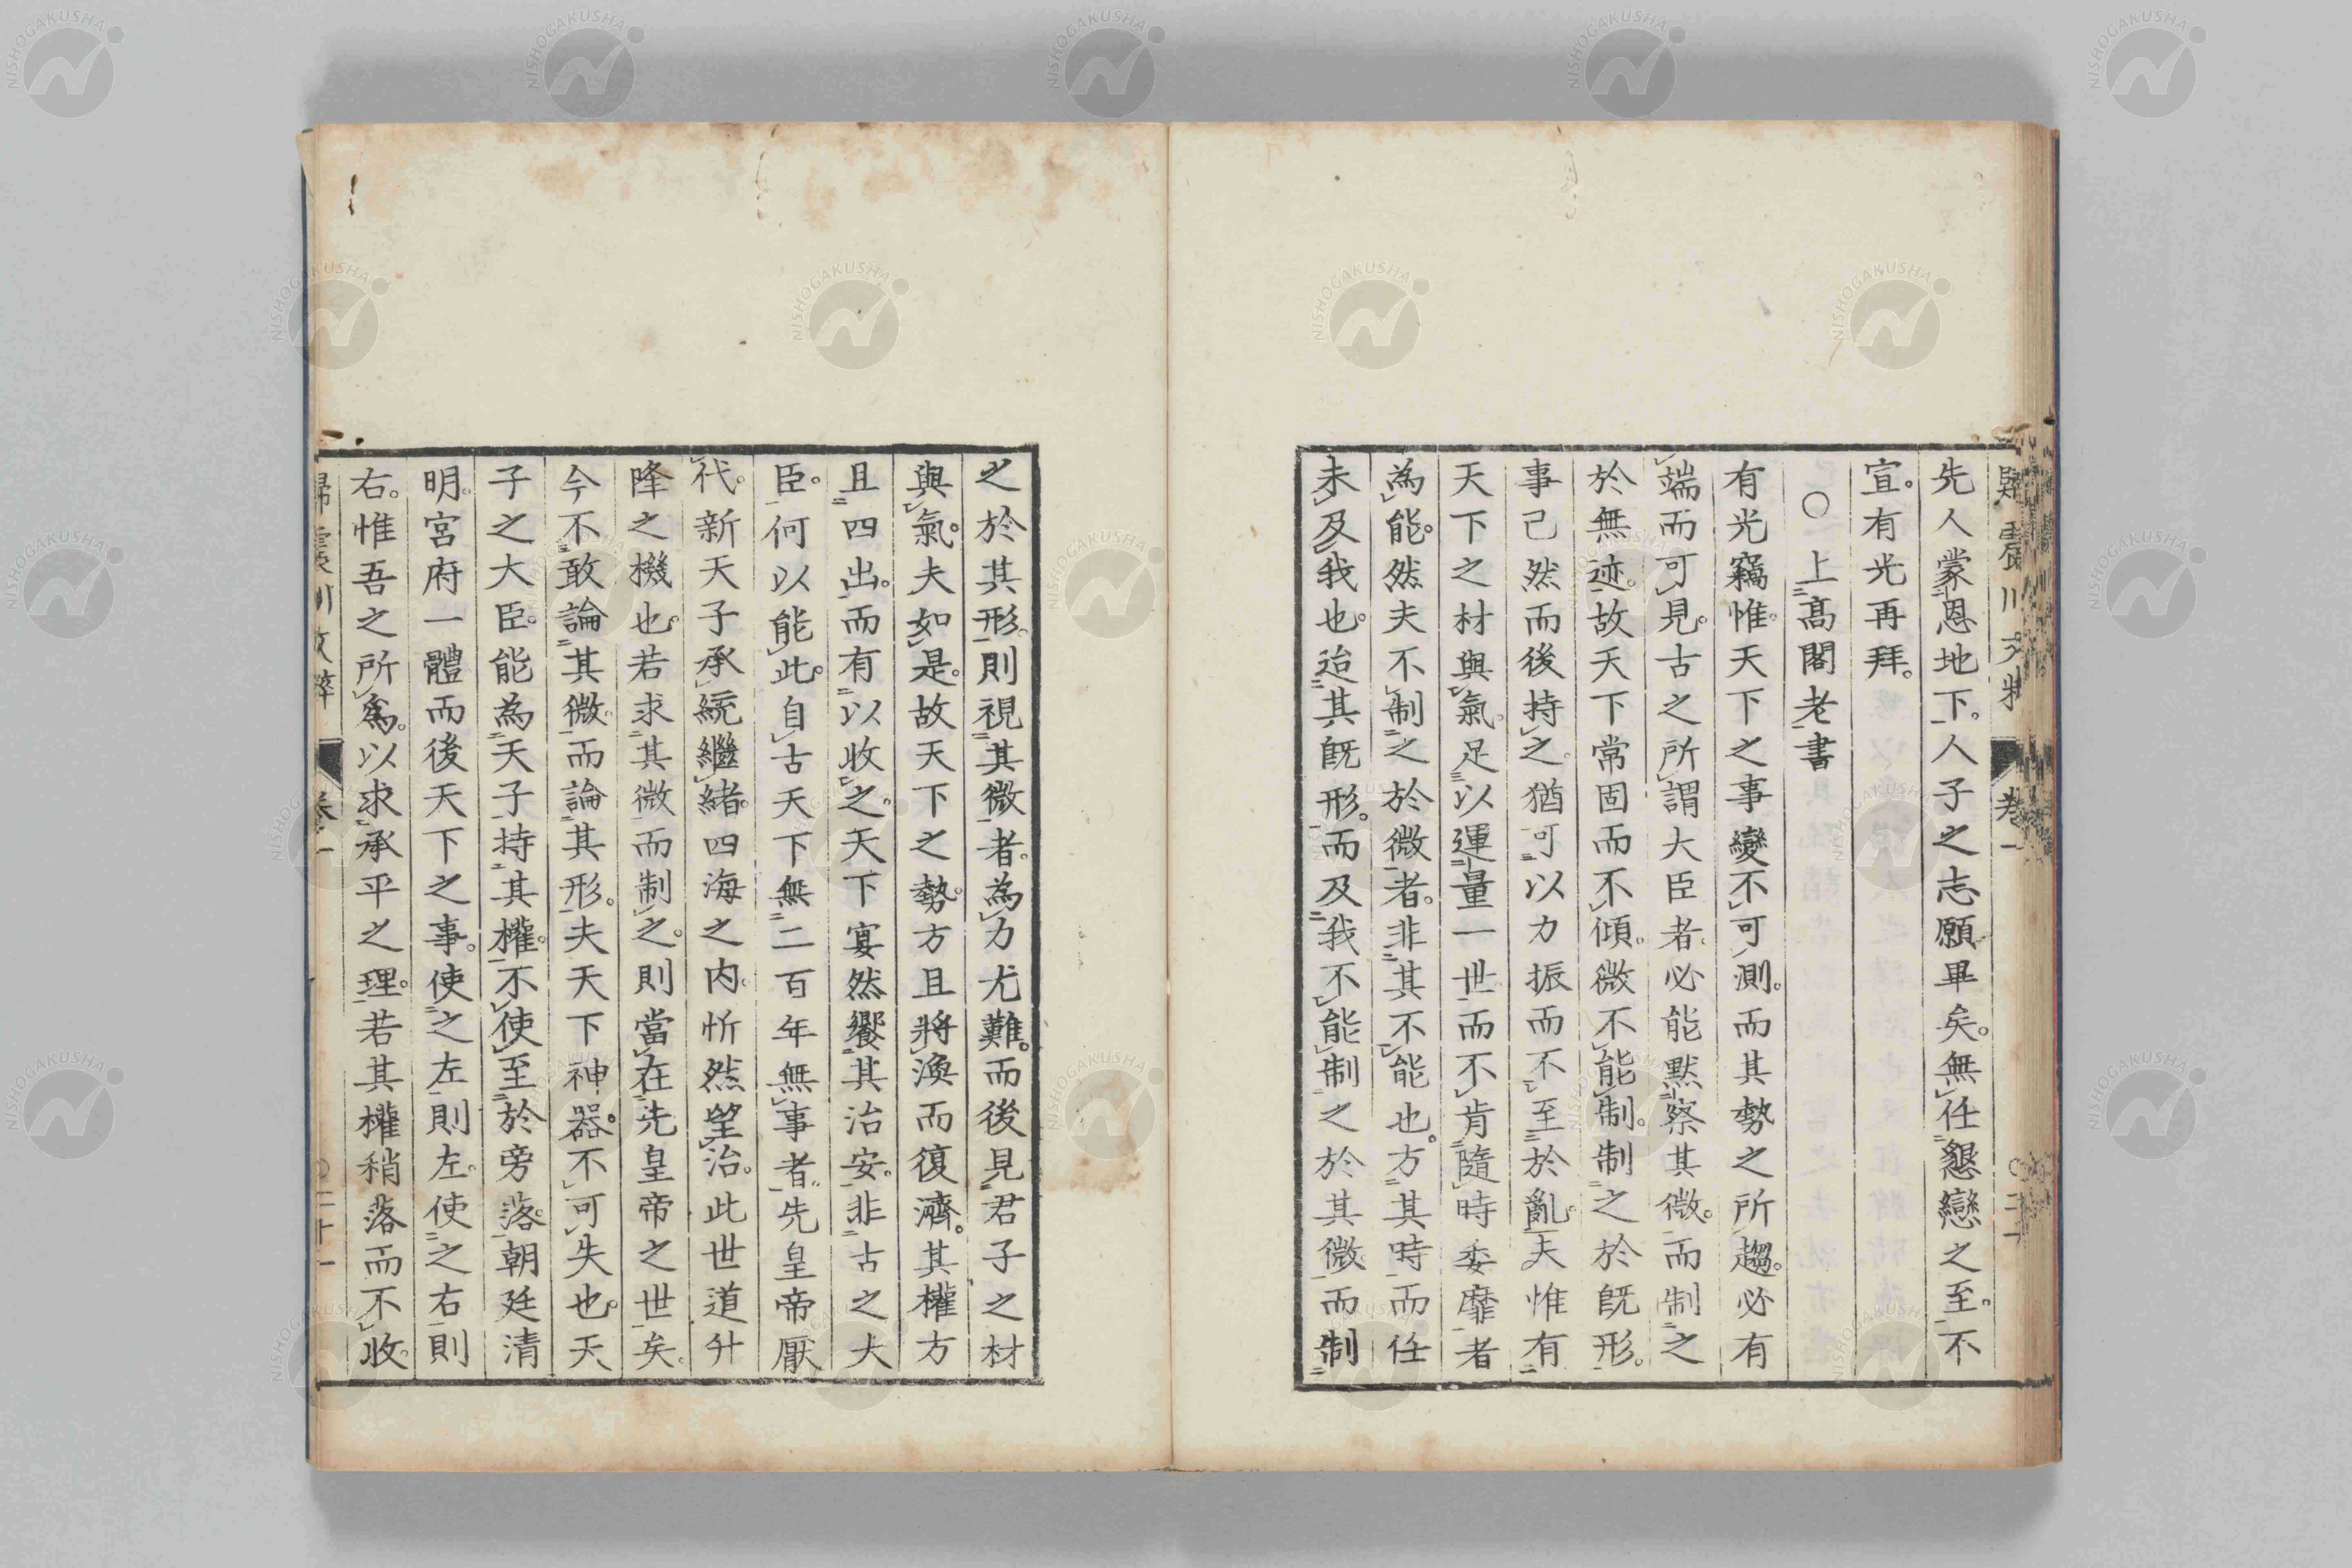 先人蒙恩地下。人子之志願畢矣。無任懇戀之至。不
宣。有光再拜。
○上高閣老書
有光竊惟。天下之事變不可測。而其勢之所趨。必有
端而可見。古之所謂大臣者。必能默察其微。而制之
於無迹。故天下常固而不傾。微不能制。制之於既形。
事已然而後持之。猶可以力振而不至於亂。夫惟有
天下之材與氣。足以運量一世。而不肯隨時委靡者
為能。然夫不制之於微者。非其不能也。方其時而任
未及我也。迨其既形。而及我不能制之於其微。而制
之於其形。則視其微者。為力尤難。而後見君子之材
與氣。夫如是。故天下之勢。方且將渙而復濟。其權方
且四出。而有以收之。天下宴然饗其治安。非古之大
臣。何以能此。自古天下無二百年無事者。先皇帝厭
代。新天子承統繼緒。四海之内。忻然望治。此世道升
降之機也。若求其微而制之。則當在先皇帝之世矣。
今不敢論其微。而論其形。夫天下神器。不可失也。天
子之大臣。能為天子持其權。不使至於旁落。朝廷清
明。宮府一體而後天下之事。使之左則左。使之右則
右。惟吾之所為。以求承平之理。若其權稍落而不收。
卷一
卷一
二十一
NISHOGAKUSHA